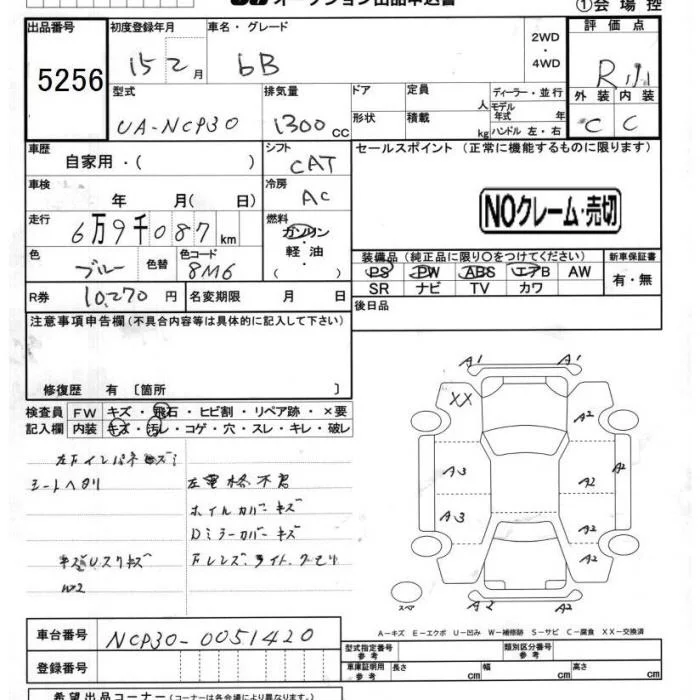 オークション出品申込書
①会場控
出品番号 初度登録年月 車名・グレード 2WD・4WD 評価点
5256 15 2月 bB R
型式 排気量 ドア 定員 人 ディーラー・並行 外装 内装
UA-NCP30 1300cc 形状 積載 kg モデル年式 年 ハンドル 左・右 C C
車歴 自家用・( ) シフト CAT セールスポイント (正常に機能するものに限ります)
車検 年 月( 日) 冷房 AC
NOクレーム・売切
走行 6万9千087km 燃料 ガソリン・軽油・( )
色 ブルー 色替 色コード 8M6
装備品(純正品に限り○をつけてください) 新車保証書
PS PW ABS エアB AW 有・無
SR ナビ TV カワ
R券 10,270円 名変期限 月 日 後日品
注意事項申告欄(不具合内容等は具体的に記入して下さい)
修復歴 有 〔箇所 〕
検査員 FW キズ・飛石・ヒビ割・リペア跡・×要
記入欄 内装 キズ・汚レ・コゲ・穴・スレ・キレ・破レ
シートヘタリ
ホイルカバーキズ
Dミラーカバーキズ
W2
A1 A1
XX A2
A3 A2 A2
A3 A2
A2
A2 A2
スペア
A-キズ E-エクボ U-凹み W-補修跡 S-サビ C-腐食 XX-交換済
車台番号 NCP30-0051420
登録番号
型式指定番号 参考 類別区分番号 参考
車庫証明用 参考 長さ cm 幅 cm 高さ cm
希望出品コーナー(コーナーは各会場により異なります。)